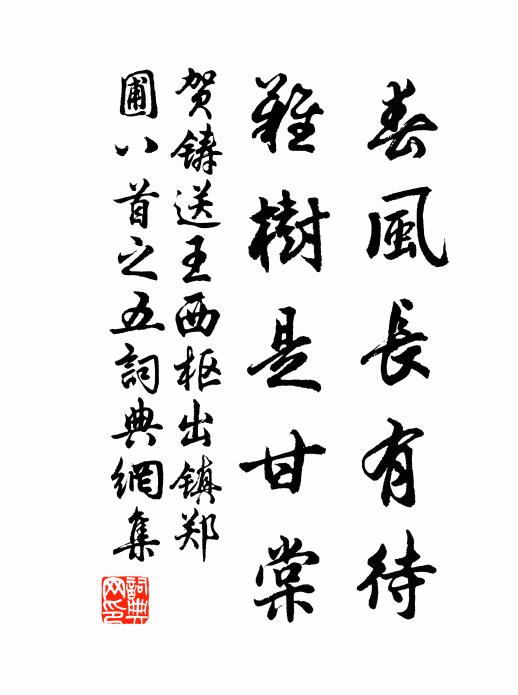 春風長有待
難樹是甘棠
贺鑄送王西枢出镇郑
圃八首之五詞典網集
詞典网印